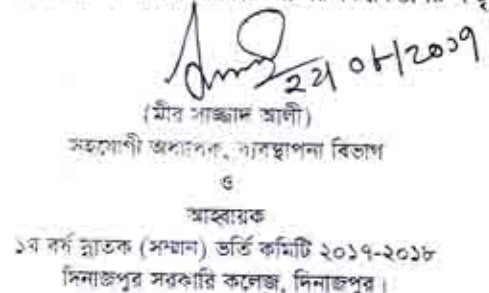 ২২/০৮/২০১৭
(মীর সাজ্জাদ আলী)
সহযোগী অধ্যাপক, ব্যবস্থাপনা বিভাগ
ও
আহবায়ক
১ম বর্ষ স্নাতক (সম্মান) ভর্তি কমিটি ২০১৭-২০১৮
দিনাজপুর সরকারি কলেজ, দিনাজপুর।